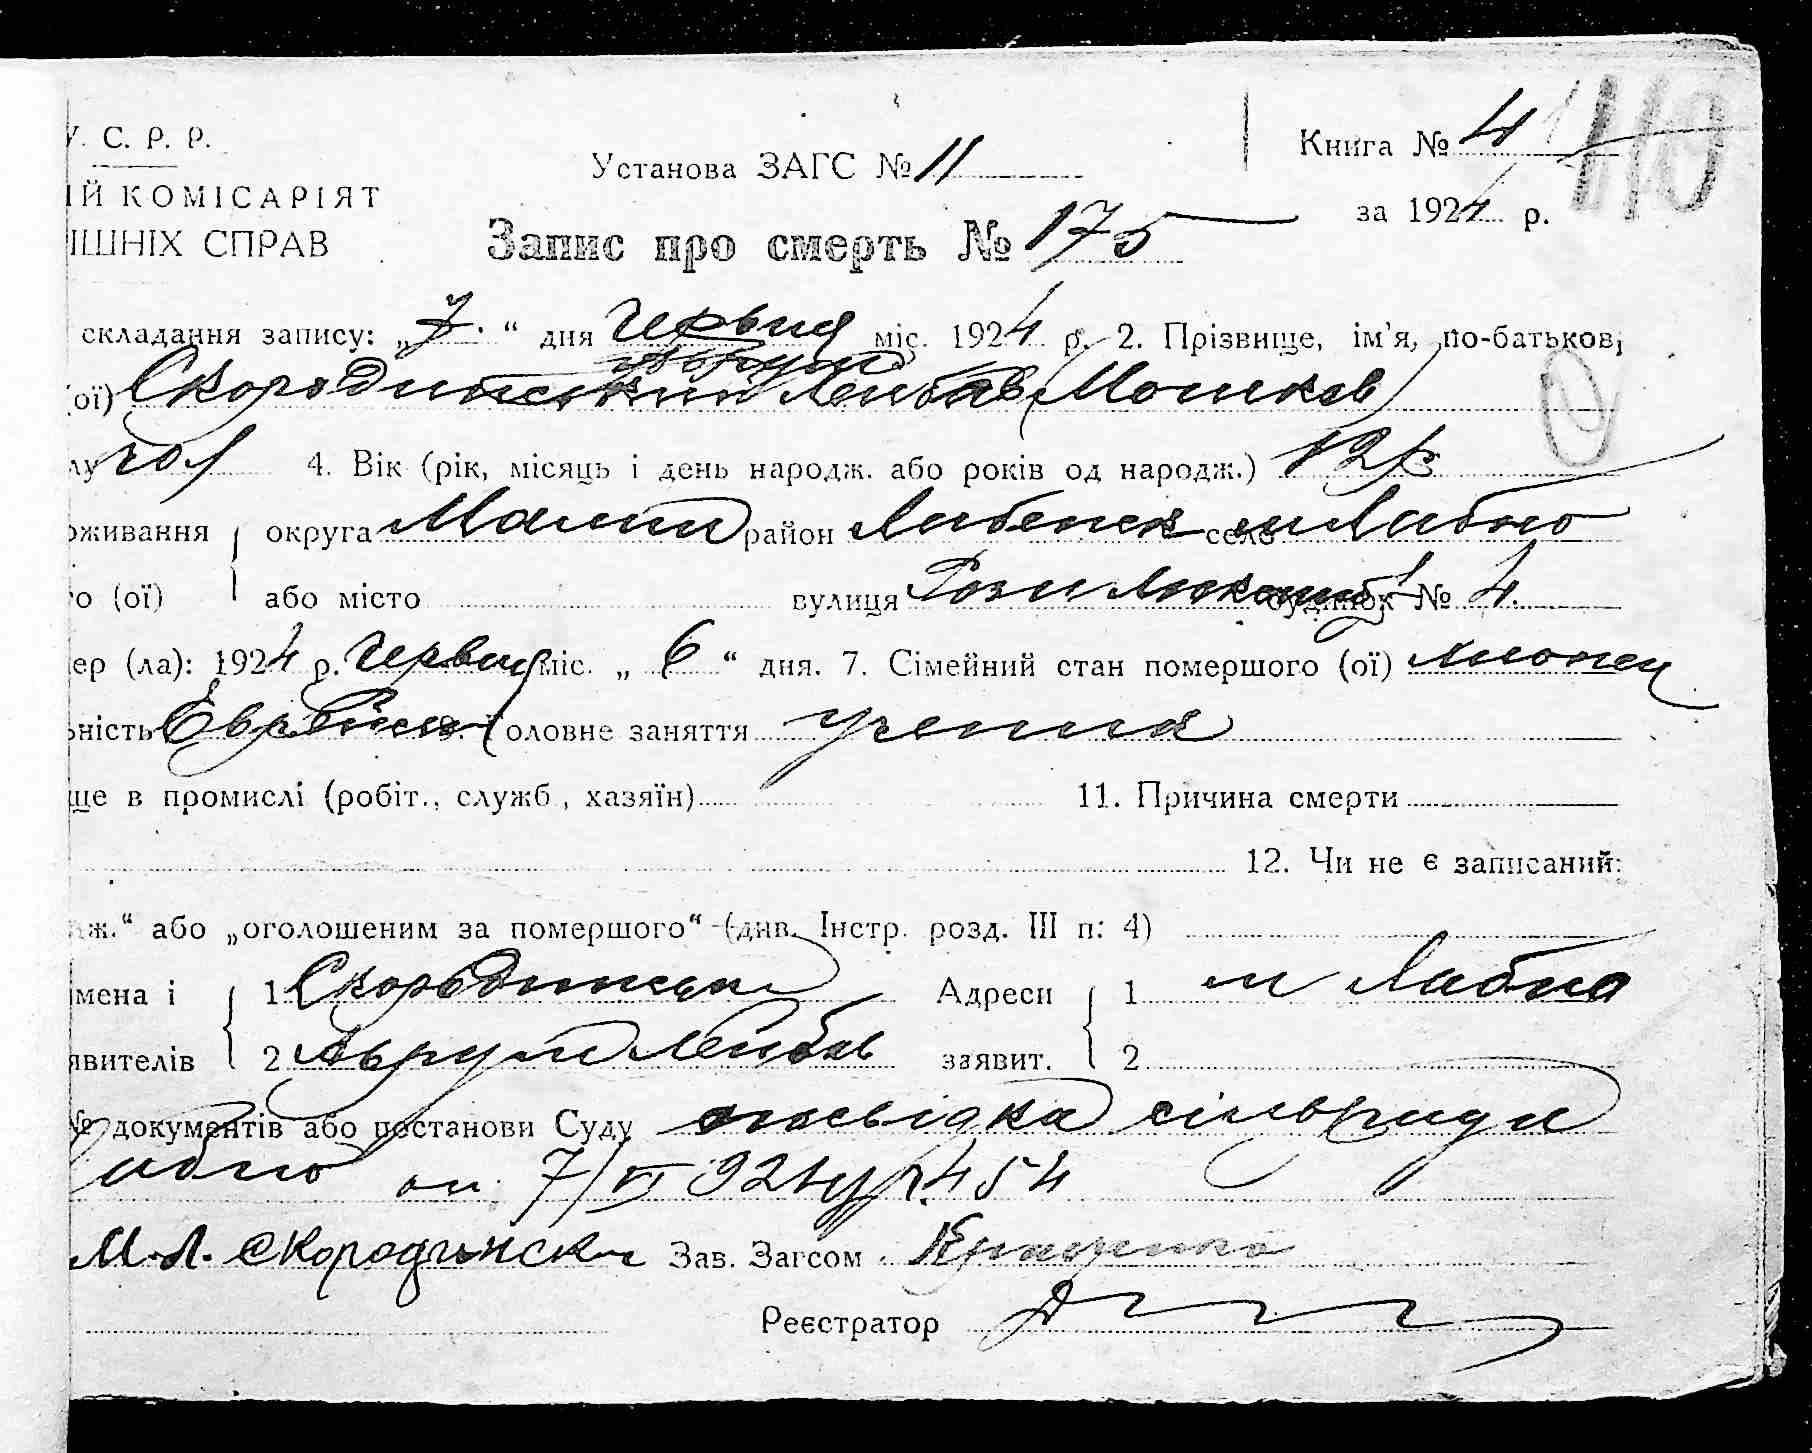 У. С. Р. Р.
Установа ЗАГС № 11
Книга № 4
110
ИЙ КОМІСАРІЯТ
за 1924 р.
ІШНІХ СПРАВ
Запис про смерть № 175
складання запису: „7“ дня Червня міс. 1924 р. 2. Прізвище, ім'я, по-батькові
(ої) Скородинський Лейбов Мошков
лу чол 4. Вік (рік, місяць і день народж. або років од народж.) 12 р
оживання округа район село м
о (ої) або місто вулиця Рози Люксемб будінок № 4
ер (ла): 1924 р. Червня міс. „6“ дня. 7. Сімейний стан помершого (ої)
ьність Єврейська 9. Головне заняття
ще в промислі (робіт., служб., хазяїн) 11. Причина смерти
12. Чи не є записаний:
ж.“ або „оголошеним за помершого“ (див. Інстр. розд. III п. 4)
імена і 1 Скородинський Адреси 1 м
явителів 2 Аврум Лейбов заявит. 2
№ документів або постанови Суду посвідка сільради
7/VI 924 р. 454
М. Л. Скородинский Зав. Загсом
Реєстратор